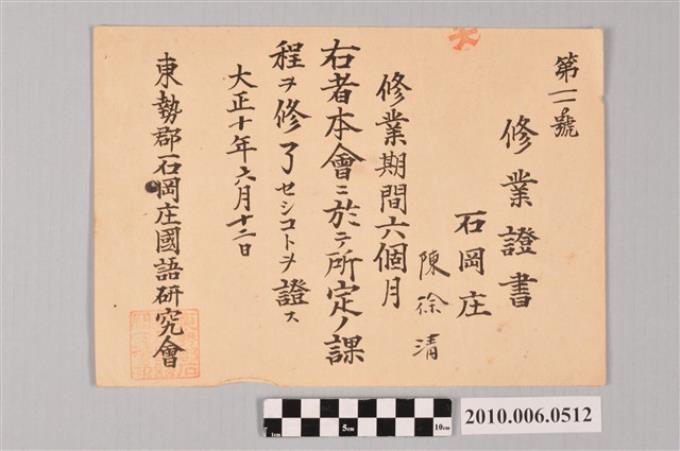 第一號
修業證書
石岡庄
陳徐清
修業期間六個月
右者本會ニ於テ所定ノ課
程ヲ修了セシコトヲ證ス
大正十年六月十二日
東勢郡石岡庄國語研究會
1cm 5cm 10cm
2010.006.0512